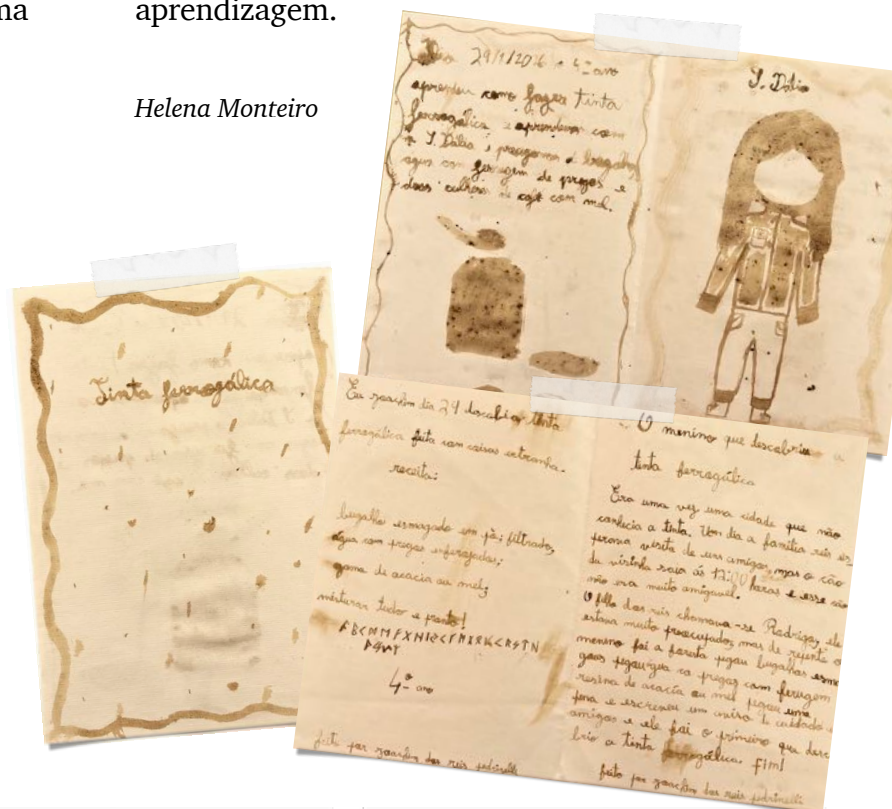 ma
aprendizagem.
Helena Monteiro
Dia 29/1/2016 o 4º ano
aprendeu como fazer tinta
ferrogálica e aprendemos com
a S. Dália
água com ferragem de pregos e
duas colheres de café com mel.
S. Dália
Tinta ferrogálica
Eu joaquim dia 29 descobri a tinta
ferrogálica feita com coisas estranha.
receita:
bugalho esmagado em pó; filtrado;
água com pregos enferojados;
goma de acacia ou mel;
misturar tudo e pronto!
4º ano
feito por joaquim dos reis pedrinelli
O menino que descobriu a
tinta ferrogálica
Era uma vez uma cidade que não
conhecia a tinta. Um dia a familia reis es
perava visita de uns amigos, mas o cão
da vizinha saia ás 12:00 horas e esse cão
não era muito amigavél.
O filho dos reis chamava-se Rodrigo, ele
estava muito preocupado, mas de repente o
menino foi a foresta pegou bugalhos esma
gaos pregos com ferugem
resina de acacia ou mel pegou uma
pena e escreveu um aviso
amigos e ele foi o primeiro que desco
brio a tinta ferrogálica. fim!
feito por joaquim dos reis pedrinelli